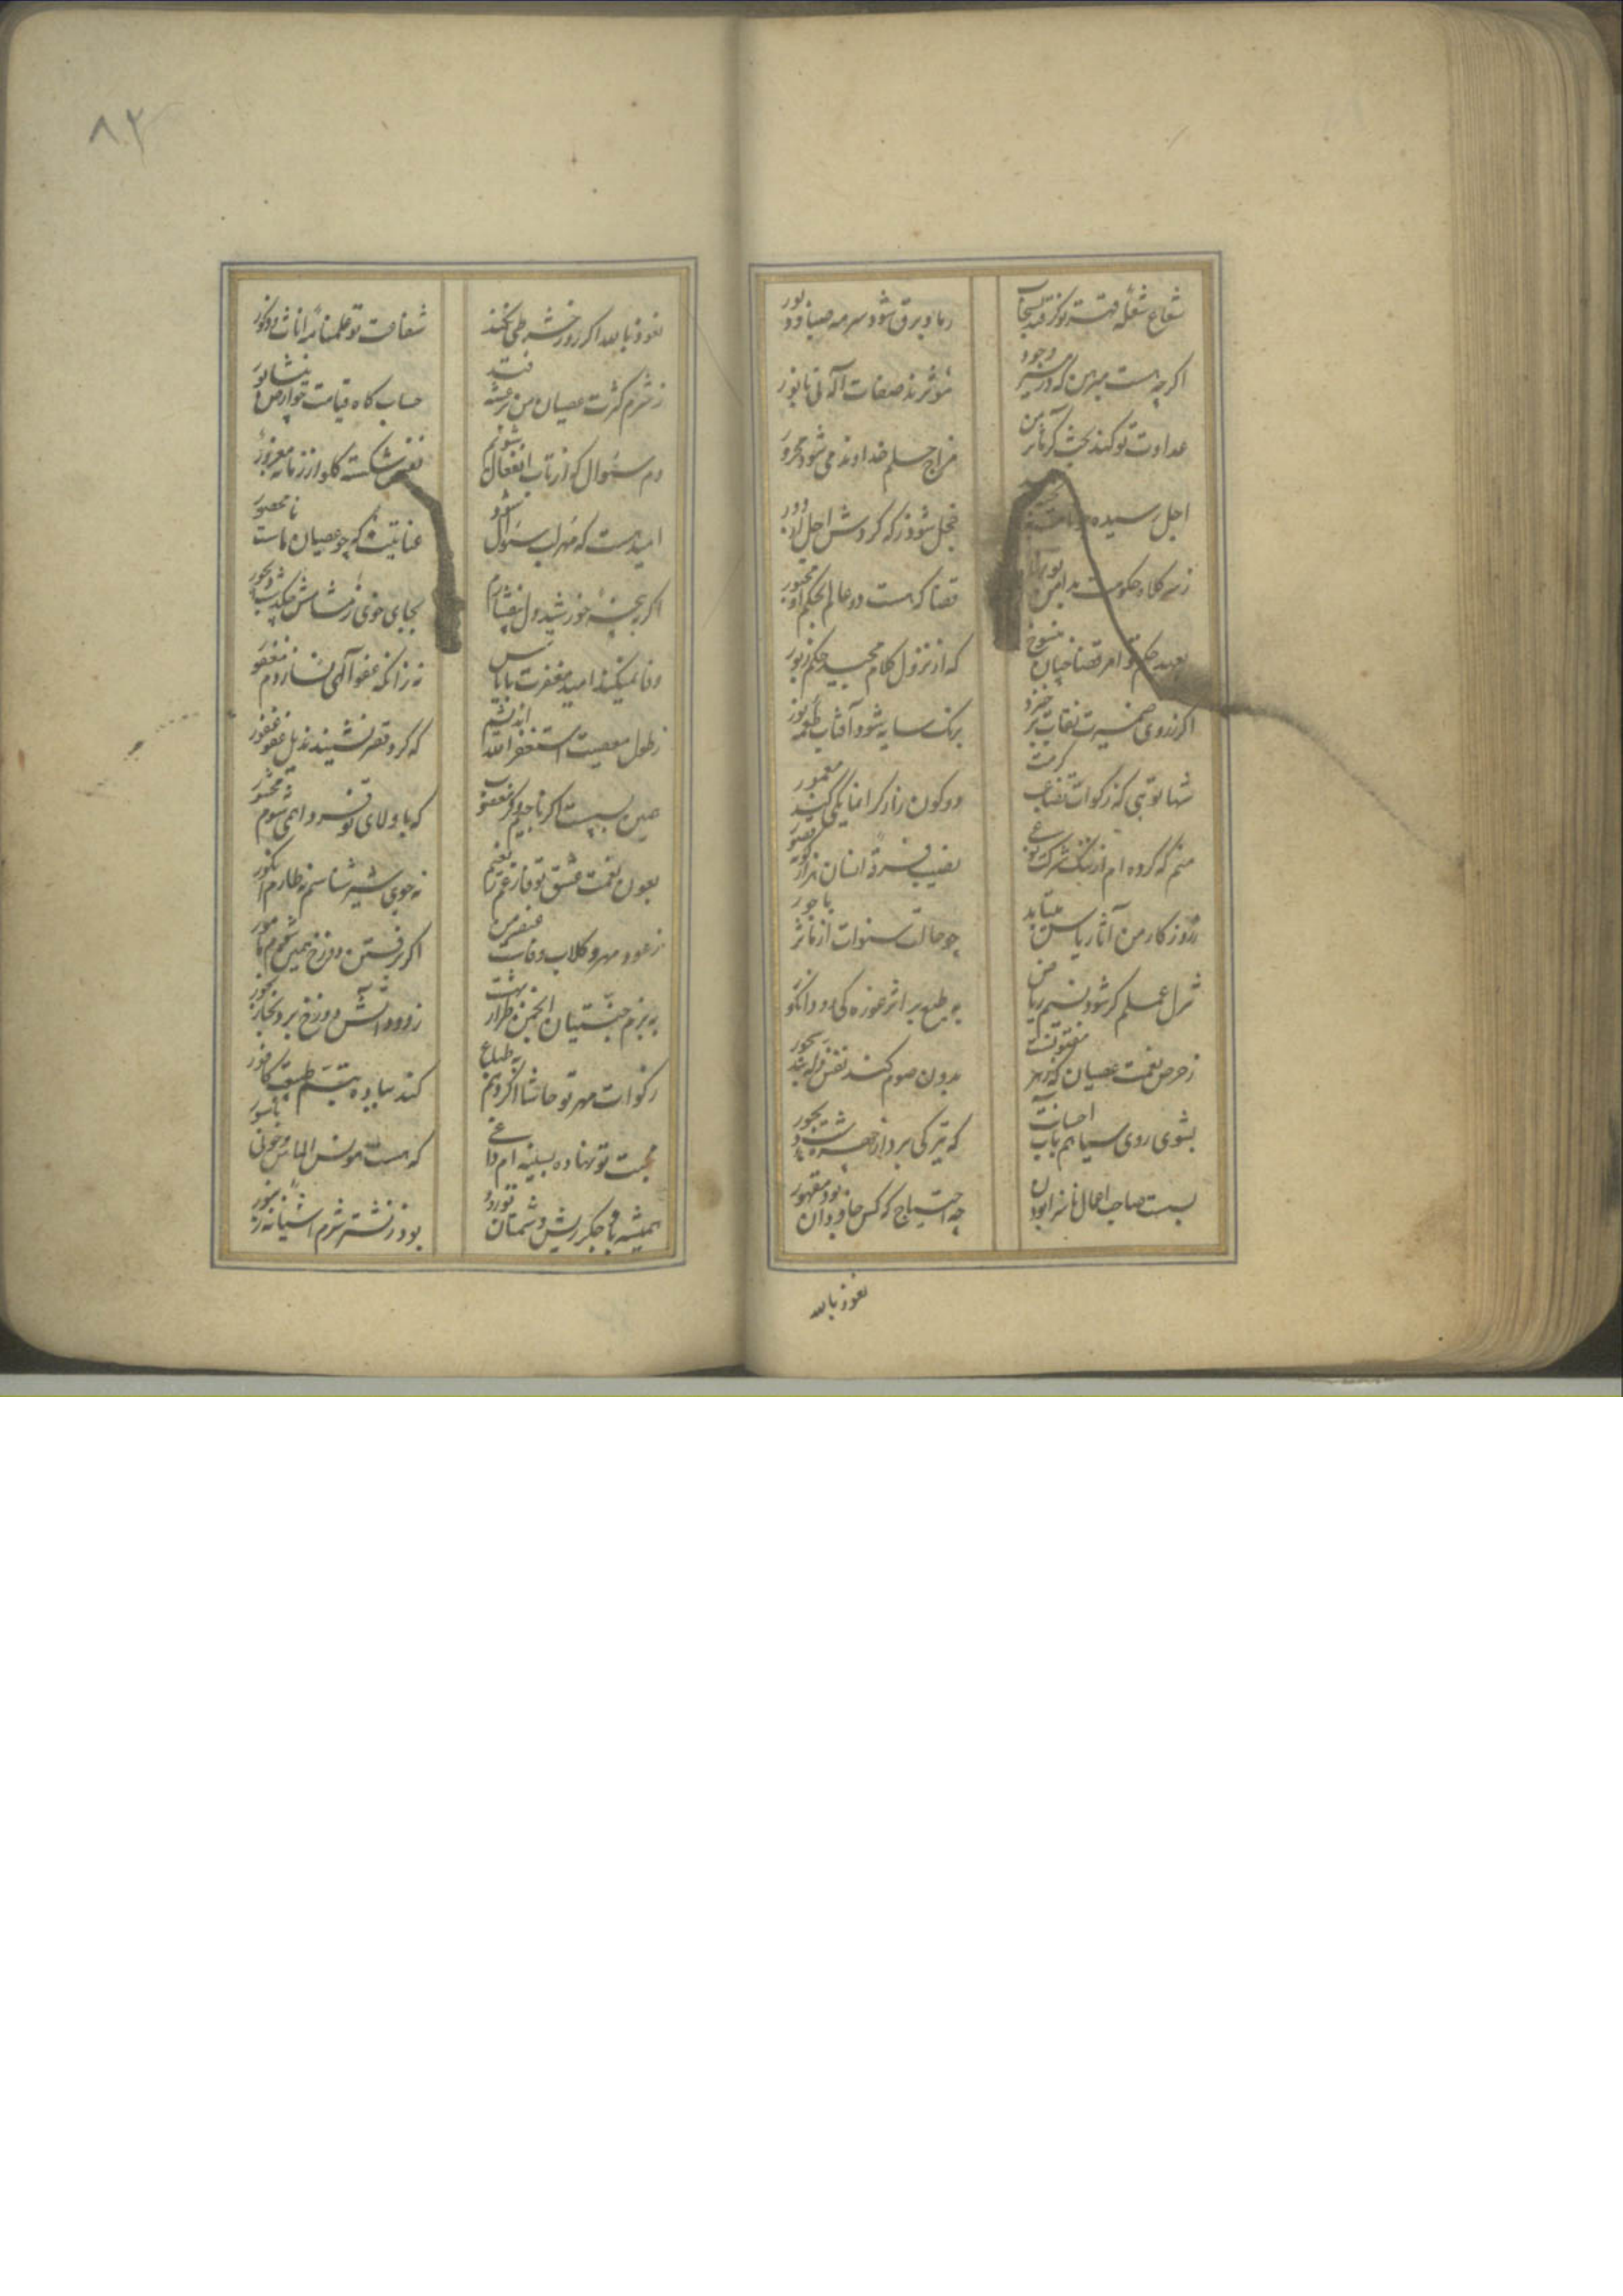 شعاع شعله قهر تو گر فتد بسحاب
ز باد برق شود سرمه صبا و دبور
اگر چه هست مبرهن که در سریر وجود
مؤثرند صفات آله نی تا بور
عداوت تو کند بحث گر
مزاج حلم خداوند می شود محرور
اجل رسیده
خجل شود ز که گردش اجل از دور
زهی کلاه حکومت
قضا که هست دو عالم بحکم او مجبور
بعهد حکم تو امر قضا چنان منسوخ
که از نزول کلام مجید حکم زبور
اگر ز روی ضمیرت نقاب بر خیزد
برنک سایه شود آفتاب طعمه نور
شها تویی که زکوات نصاب کرمت
دو کون را ز کرانمایکی کند معمور
منم که کرده ام از ننک شرکت نوعی
نصیب فرقه انسان هزار کونه قصور
ز روزکار من آثار یاس میتابد
چو حالت سنوات از
ثمر ل عملم گر شود نسیم ریاض
به طبع بر اثر غوره کی دود انکور
ز حرص نعمت عصیان که زهر مفتونست
بدون صوم کند نفس
بشوی روی سیاهم بآب احسانت
که تیرکی برد از چهره شب دیجور
بست صاحب اعمال ناسزا بودن
چه احتیاج که کس جاودان بود مقهور
نعوذ بالله
۸۳
نعوذ بالله اگر روز حشر طی نکند
شفاعت تو علمنامه اناث و ذکور
ز شرم کثرت عصیان من برعشه فتد
حساب کاه قیامت چو ارض نیشابور
دم سؤال که از تاب انفعال شوم
نفس شکسته کلو از زنا
امید هست که مهر لب سئوال شود
عنایتیت که چو عصیان ماست نا محصور
اگر به پنجه خورشید دل بیفشارم
بجای خوی ز مشامش چکد شب دیجور
وفا نمیکند امید مغفرت با یاس
نه زانکه عفو آلهی نسازدم مغفور
ز طول معصیت استغفر الله اندیشم
که کرد قصر نشیند بذیل عفو غفور
همین بس است اگر ناجیم و گر مغضوب
که با ولای تو فردا همی شوم محشور
بعون نعمت عشق تو فارغم ز نعیم
نه جوی شیر شناسم نه طارم انکور
ز عود مهر و کلاب وفات عنصر من
اگر برفتن دوزخ همین شوم مامور
به بزم جنتیان انجمن طراز بهشت
ز دود آتش دوزخ برد بخار بخور
زکوات مهر تو حاشا اگر دهم به طباع
کند بباده تبسم طبیعت کافور
محبت تو نهاده بسینه ام داغی
که هست مونس الماس و خونی ناسور
همیشه تا جکر ریش دشمنان تو را
بود ز نشتر شرم آشیانه زنبور